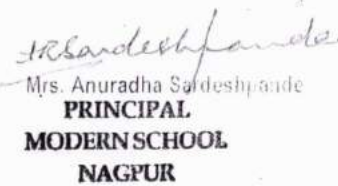 ARSardeshpande
Mrs. Anuradha Sardeshpande
PRINCIPAL
MODERN SCHOOL
NAGPUR